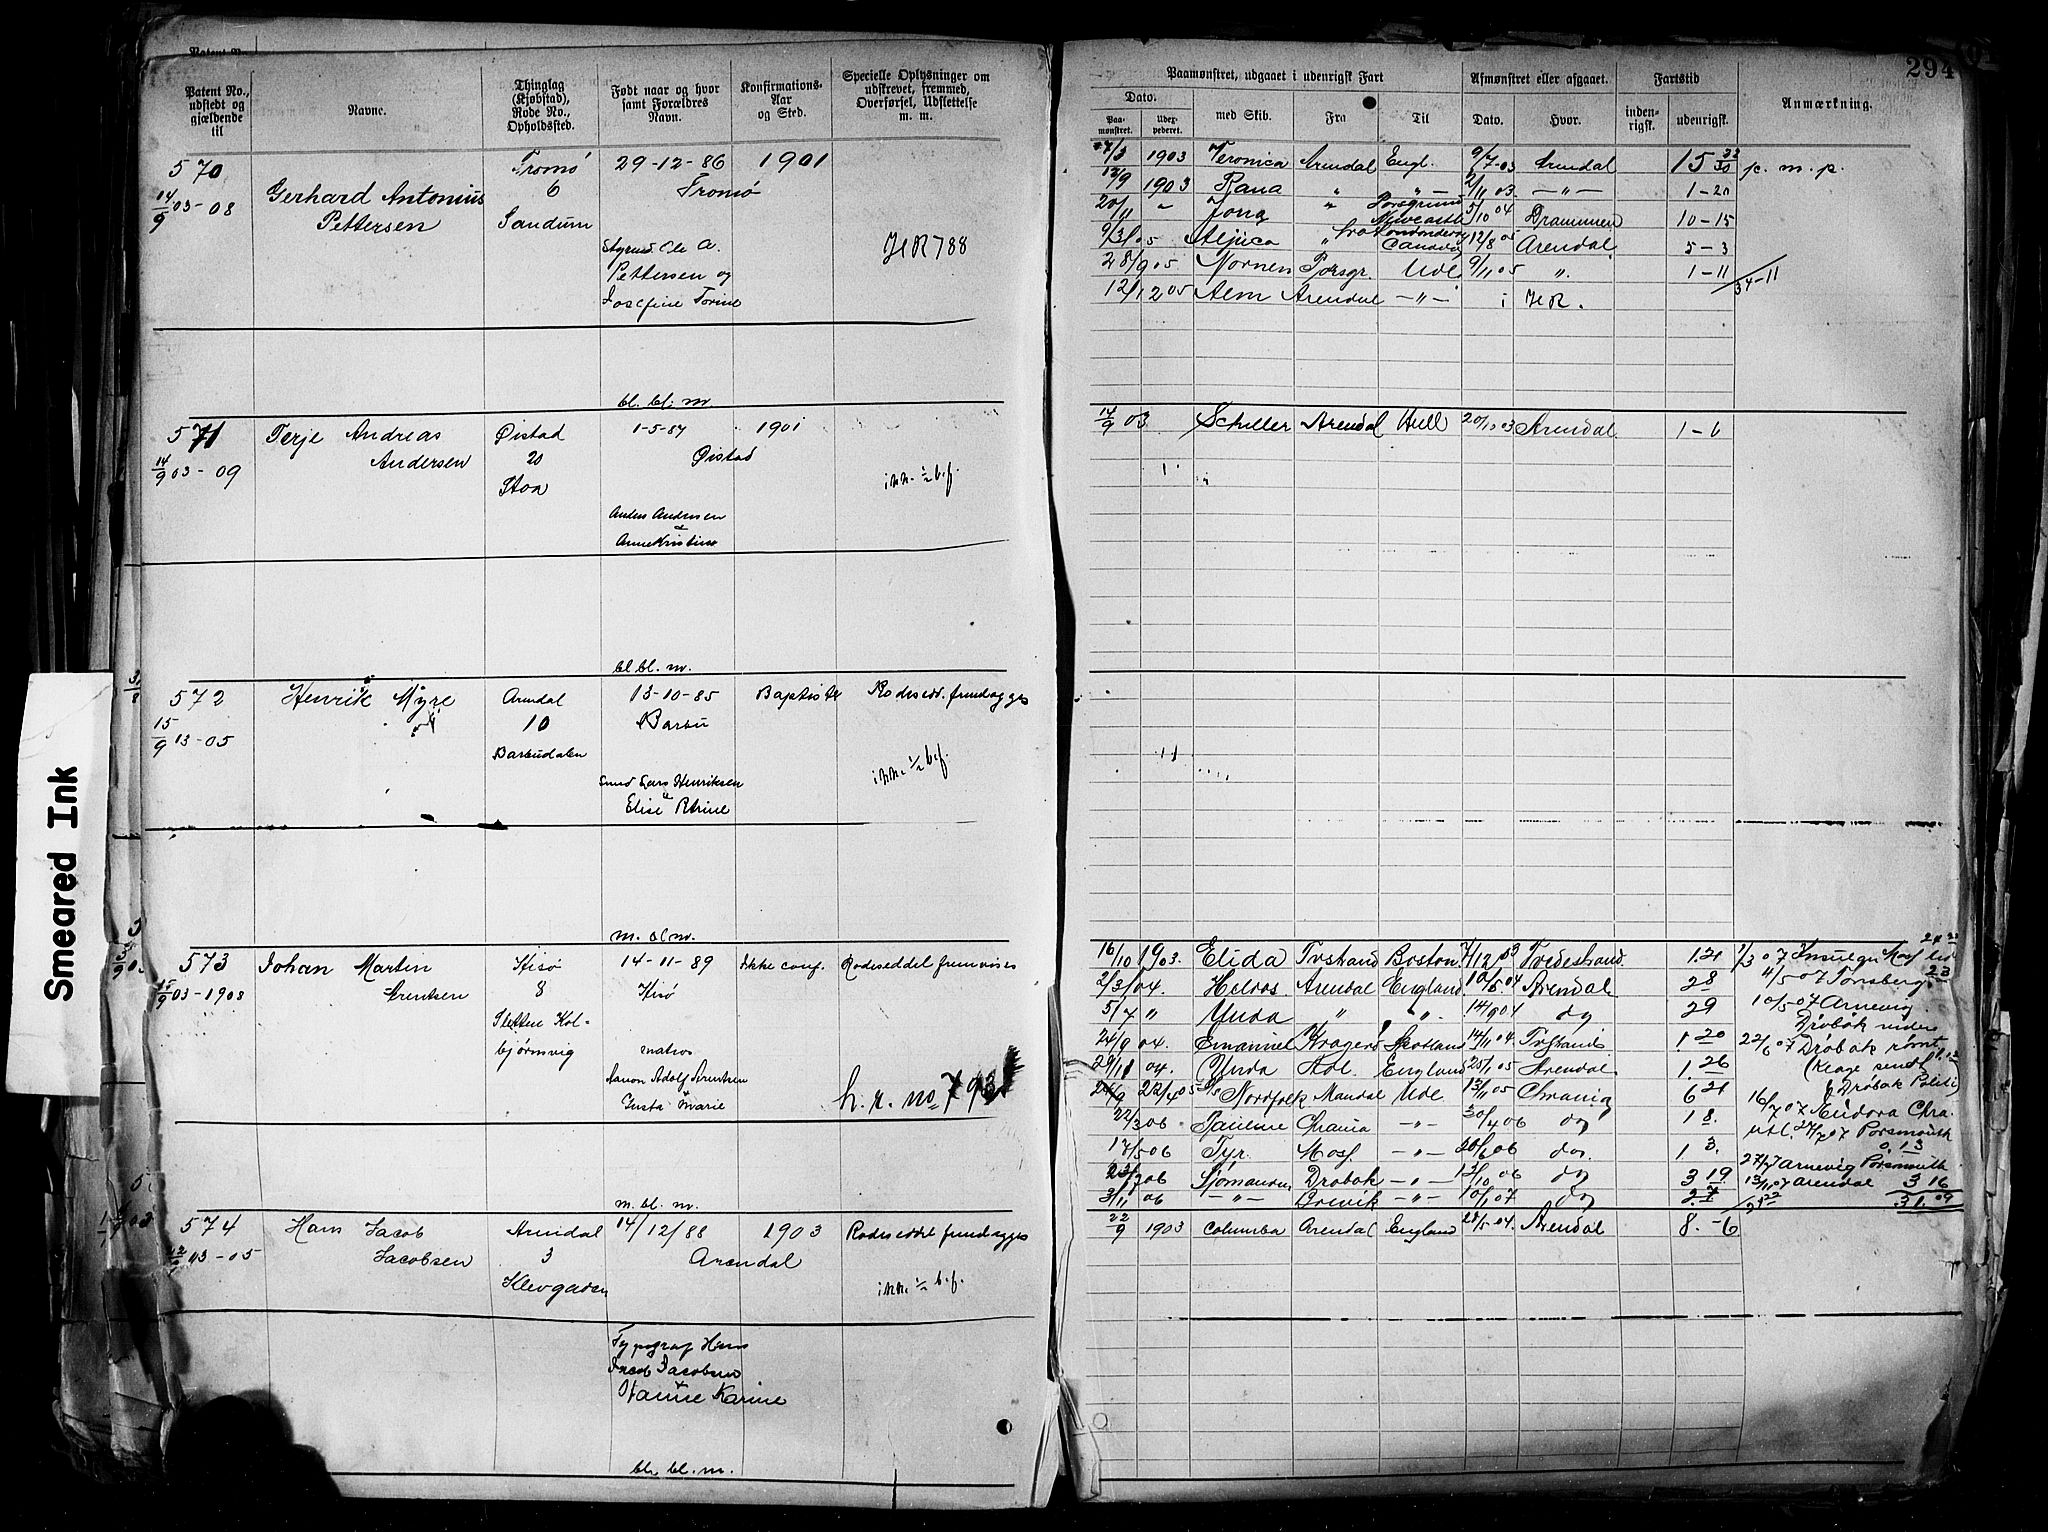 294
Patent No., udstedt og gjældende til
Navne.
Thinglag (Kjøbstad), Rode No., Opholdssted.
Født naar og hvor samt Forældres Navn.
Konfirmations-Aar og Sted.
Specielle Oplysninger om udskrevet, fremmed, Overførsel, Udslettelse m. m.
Paamønstret, udgaaet i udenrigsk Fart
Dato.
Paamønstret.
Udexpederet.
med Skib.
Fra
Til
Afmønstret eller afgaaet.
Dato.
Hvor.
Fartstid
indenrigsk.
udenrigsk.
Anmærkning.
570
14/9 03-08
Gerhard Antonius
Pettersen
Tromø
6
Sandum
29-12-86
1901
Tromø
Ole A.
Pettersen og
Josefine Torine
HR 788
bl. bl. m.
1903 Veronica Arendal Engl. 9/7-03 Arendal p. m. p.
12/9 1903 Rana " " 2/11 03 1-20
20/11 " " Porsgrund Newcastle 5/10 04 Drammen 10-15
9/3 05 " 12/8 05 Arendal 5-3
28/9 05 Nornen Porsgr. Udl 9/11 05 " 1-11
34-11
12/12 05 Alm Arendal -"- i HR.
571
14/9 03-09
Terje Andreas
Andersen
Øistad
20
Stoa
1-5-87
1901
Øistad
Anders Andersen
&
Anne Kristine
inn. 1/2 b.f.
bl. bl. m.
14/9 03 Schiller Arendal Hull 20/10 03 Arendal 1-6
572
15/9 13-05
Henrik Myre
Arendal
10
Barbudalen
13-10-85
Barbu
Baptist
Smed Lars Henriksen
Elise
inn. 1/2 b.f.
m. bl. m.
573
15/9 03-1908
Johan Martin
Arentsen
Hisø
8
Sletten Kolbjørnsvig
14-11-89
Hisø
Ikke conf.
Rodeseddel fremvises
matros
Aanon Adolf Arentsen
Gusta Marie
h. r. no 793
m. bl. m.
16/10 1903. Elida Tvstrand Boston 7/12 03 Tvedestrand 1.21
2/3 04. Arendal England 10/5 04 Arendal 28
5/7 " Ynda " " 14/9 04 do 29
24/9 04. Emanuel Kragerø Skotland 14/11 04. 1.20
29/11 04. Ynda Adl. England 25/1 05 Arendal 1.26
Nordfolk Mandal Udl 13/11 05 Chrania 6 21
22/3 06 Pauline Chania -"- 30/4 06 do 1 8.
17/5 06 Tyr. Moss. -"- 20/6 06 do. 1 3.
Sjømanden Drøbak -"- 13/10 06 do 3 19
3/11 06 -"- -"- 10/1 07 do 2.7
4/5 07 Tønsberg 23
10/5 07 Arnevig
Drøbak
22/6 07 Drøbak rømt
(Klage sendt
Drøbak Politi)
16/7 07 Eudora Chra.
utl. 27/7 07 Porsmouth
0.13
27/7 Arnevig Porsmouth
13/11 07 Arendal 3 16
31.09
574
03-05
Hans Jacob
Jacobsen
Arendal
3
Klevgaden
14/12/88
1903
Arendal
Typograf Hans
Jacobsen
Karine
inn. 1/2 b.f.
bl. bl. m.
22/9 1903 Columba Arendal England Arendal 8.-6
Smeared Ink